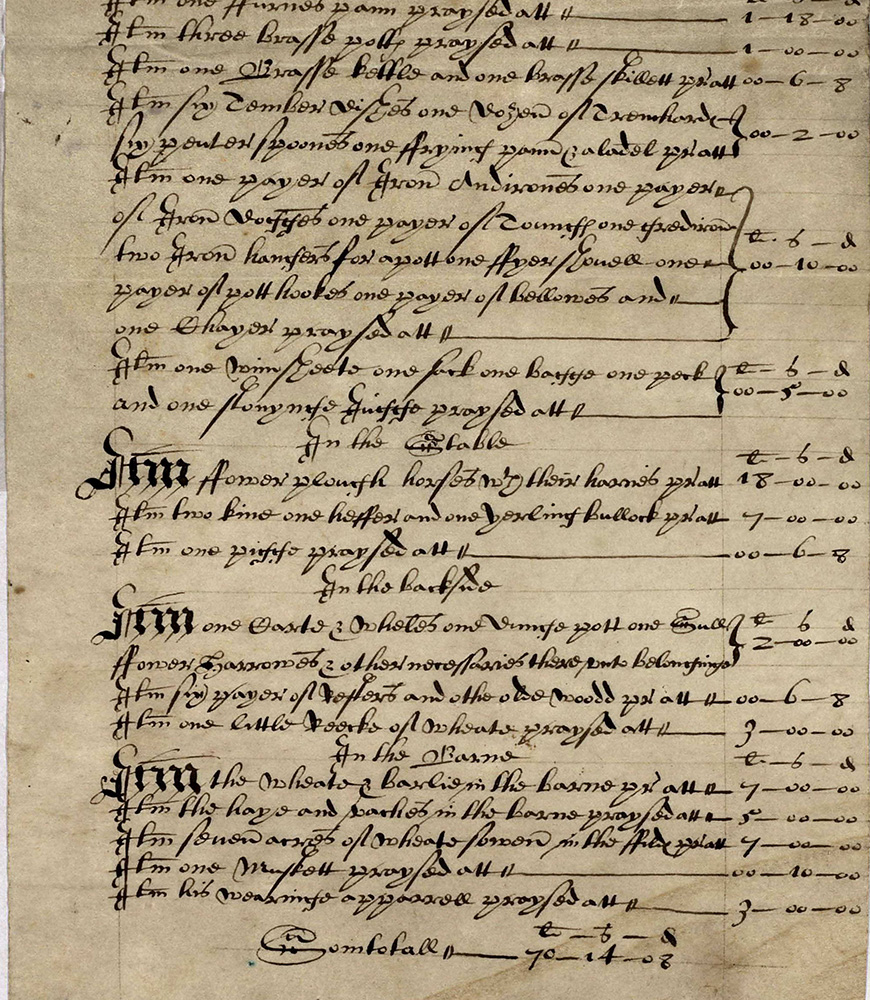 Itm one ffurnes pann praysed att 1 – 18 – 00
Itm three brasse potts praysed att 1 – 00 – 00
Itm one Brasse kettle and one brasse skillett pr att 00 – 6 – 8
Itm six Tember dishes one dozen of Trenchards
six pewter spoones one ffryinge pann & a ladel pr att 00 – 2 – 00
Itm one payer of Iron Andirones one payer
of Iron one payer of Tounges one grediron £ – s – d
two Iron hangers for a pott one ffyer shovell one 00 – 10 – 00
payer of pott hookes one payer of bellowes and
one Chayer praysed att
Itm one winsheete one sack one bagge one peck £ – s – d
and one praysed att 00 – 5 – 00
In the Stable
£ – s – d
Itm ffower plough horses wth their harnes pr att 18 – 00 – 00
Itm two kine one heffer and one yerling bullock pr att 7 – 00 – 00
Itm one pigge praysed att 00 – 6 – 8
In the backside
Itm one Carte & wheles one dunge pott one £ s d
ffower Harrowes & other necessaries there unto belonginge 2 – 00 – 00
Itm six payer of and othe olde woodd pr att 00 – 6 – 8
Itm one little Reecke of wheate praysed att 3 – 00 – 00
In the Barne £ – s – d
Itm the wheate & barlie in the barne pr att 7 – 00 – 00
Itm the haye and vaches in the barne praysed att 5 – 00 – 00
Itm seven acres of wheate sowen in the ffild pr att 7 – 00 – 00
Itm one Muskett praysed att 00 – 10 – 00
Itm his wearinge apparrell praysed att 3 – 00 – 00
£ – s – d
Somtotall 70 – 14 – 08